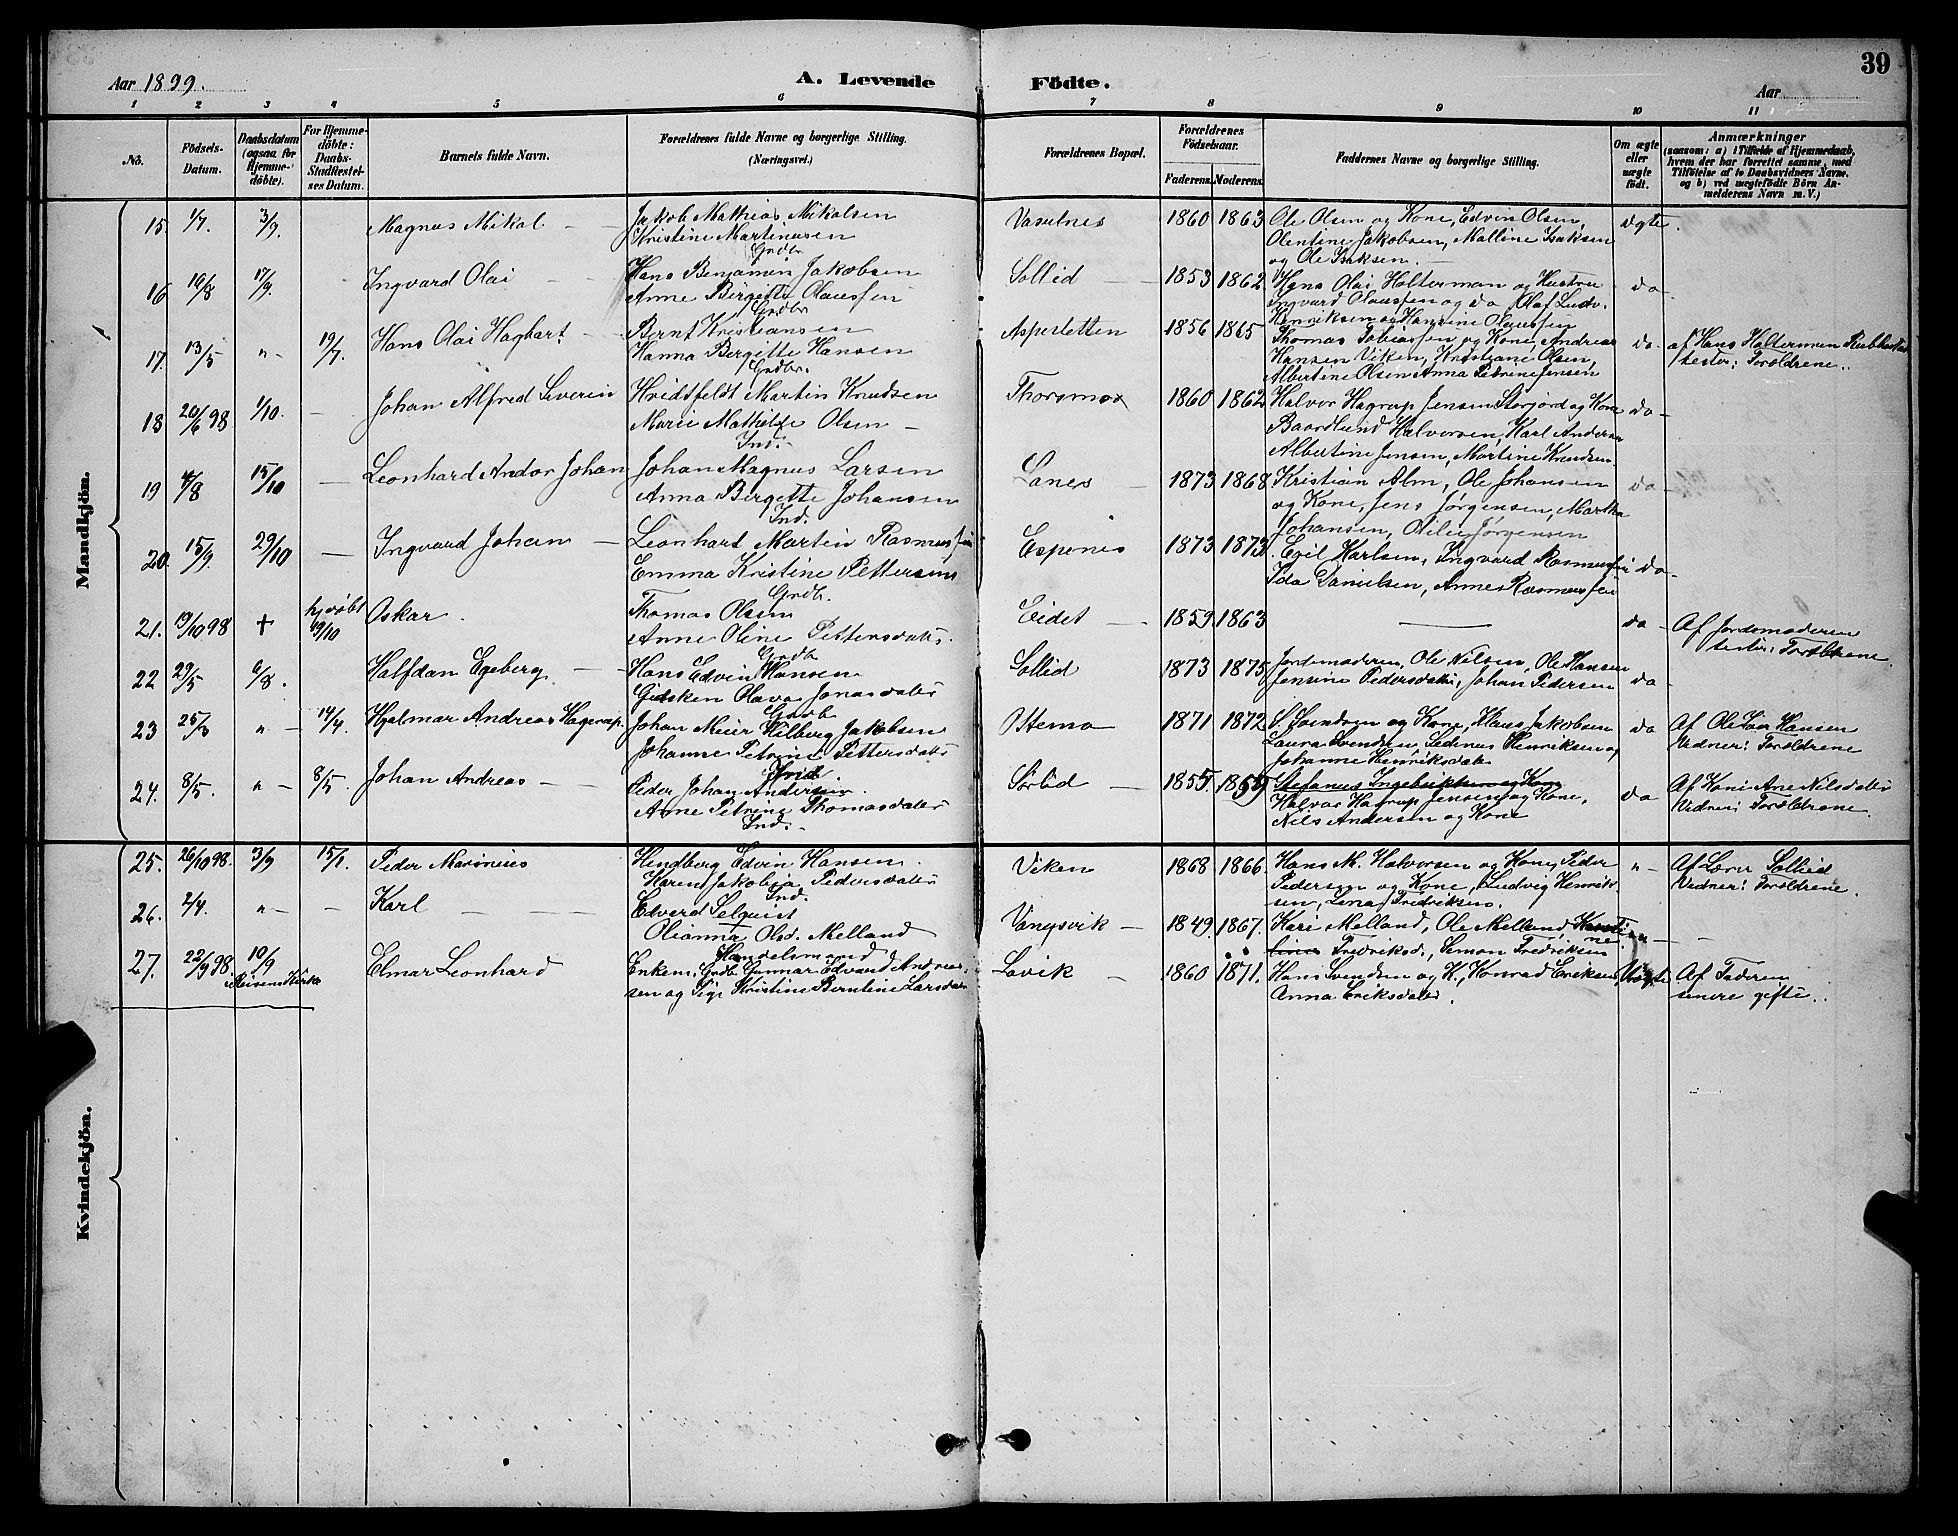 39
Aar 1899.
A. Levende Födte.
Aar
1 2 3 4 5 6 7 8 9 10 11
No.
Födsels-Datum.
Daabsdatum (ogsaa for Hjemme-döbte).
For Hjemme-döbte: Daabs-Stadfæstel-ses Datum.
Barnets fulde Navn.
Forældrenes fulde Navne og borgerlige Stilling.
(Næringsvei.)
Forældrenes Bopæl.
Forældrenes Födselsaar.
Faderens. Moderens.
Faddernes Navne og borgerlige Stilling.
Om ægte eller uægte födt.
Anmærkninger
(saasom: a) i Tilfælde af Hjemmedaab, hvem der har forrettet samme, med Tilföielse af to Daabsvidners Navne, og b) ved uægtefödte Börn An-melderens Navn m. V.)
Mandkjön.
15. 1/7. 3/9. Magnus Mikal — Jakob Mathias Mikalsen
Kristine Martinusen
Grdbr
Vasutnes 1860 1863 Ole Olsen og Kone, Edvin Olsen,
Olentine Jakobsen, Malline Isaksen
og Ole Isaksen. — ægte.
16 14/8 17/9. Ingvard Olai — Hans Benjamin Jakobsen
Anne Birgitte Olaussen
Grdbr
Sollid — 1853 1862 Hans Olai Holterman og Hustru
Ingvard Olaussen og do Olaf Ludv.
Henriksen og Hansine Olaussen do —
17. 13/5 „ — 19/7. Hans Olai Hagbart — Bernt Kristiansen
Hanna Bergitte Hansen
Grdbr.
Aspesletten 1856 1865 Thomas Tobiassen og Kone, Andreas
Hansen Viken, Kristiane Olsen,
Albertine Olsen Anna Petrine Jensen do — af Hans Haltermen
tester: Forældrene..
18 20/6 98 1/10. — Johan Alfred Severin Hvidsfeldt Martin Knudsen
Marie Mathilde Olsen —
Ind.
Thoramo 1860 1862 Halvor Hagrup Jensen Storjord og Kone
Baardlund Halvorsen, Karl Andersen
Albertine Jensen, Martine Knudsen. do —
19 4/8 15/10 — Leonhard Andor Johan Johan Magnus Larsen
Anna Bergette Johansen
Ind.
Lanes — 1873 1868 Kristian Alm, Ole Johansen
og Kone, Jens Jørgensen, Martha
Johansen, Otilie Jørgensen do —
20. 15/9 29/10 — Ingvard Johan — Leonhart Martin Rasmussen
Emma Kristine Pettersen
Grdbr.
Espenes 1873 1873 Egil Karlsen, Ingvard Rasmussen
Ida Danielsen, Anne Rasmussen do —
21. 19/10 98 + hj.døbt 19/10 Oskar. Thomas Olsen
Anne Oline Pettersdatr.
Grdbr
Eidet — 1859 1863 — do — Af Jordemoderen
tester: Forældrene.
22 29/5 6/8. Halfdan Egeberg — Hans Edvin Hansen
Gidsken Olava Jonasdatr
Grdbr
Sollid 1873 1875 Jordemoderen, Ole Nilsen, Ole Hansen
Jensine Pedersdatr, Johan Pedersen do —
23 25/3 „ — 14/4. Hjalmar Andreas Hagerup. Johan Meier Hilberg Jakobsen
Johanne Petrine Pettersdatr
Ind.
Ottemo 1871 1872 S. Svendsen og Kone, Klaus Jakobsen
Laura Svendsen, Sedenus Henriksen,
Johanne Henriksdatr do Af Ole Hansen
Vidner: Forældrene
24. 8/5. „ — 8/5. Johan Andreas — Peder Johan Andersen.
Anne Petrine Thomasdatr
Ind.
Sørlid — 1855. 1859 Stefanus Ingebriktsen og Kone
Halvor Hagrup Jensen og Kone,
Nils Andersen og Kone do Af Kone Ane Nilsdatr
Vidner: Forældrene
Kvindekjön.
25. 26/10 98. 3/9 15/1. Peder Maronius Hendberg Edvin Hansen.
Karen Jakobia Pedersdatr
Ind.
Viken 1868 1866. Hans M. Halvorsen og Kone, Peder
Pedersen og Kone, Ludvig Henrik-
sen, Lina Fredriksen. „ — Af Lærer Sollied
Vidner: Forældrene.
26. 2/4. „ — — Karl — — — Edvard Selquist
Olianna Olsd. Melland
Vangsvik — 1849 1867. Kari Melland, Ole Melland,
Fredriksd., Simon Fredriksen — —
27. 22/9 98 10/9
i Reisens Kirke Elmar Leonhard
Handelsmand
Enkem. Grdbr Gunnar Edvard Andreas-
sen og Pige Kristine Berntine Larsdatr
Lavik — 1860 1871. Hans Svendsen og K., Konrad Eriksen,
Anna Eriksdatr. Uægte Af Faderen
senere gifte..